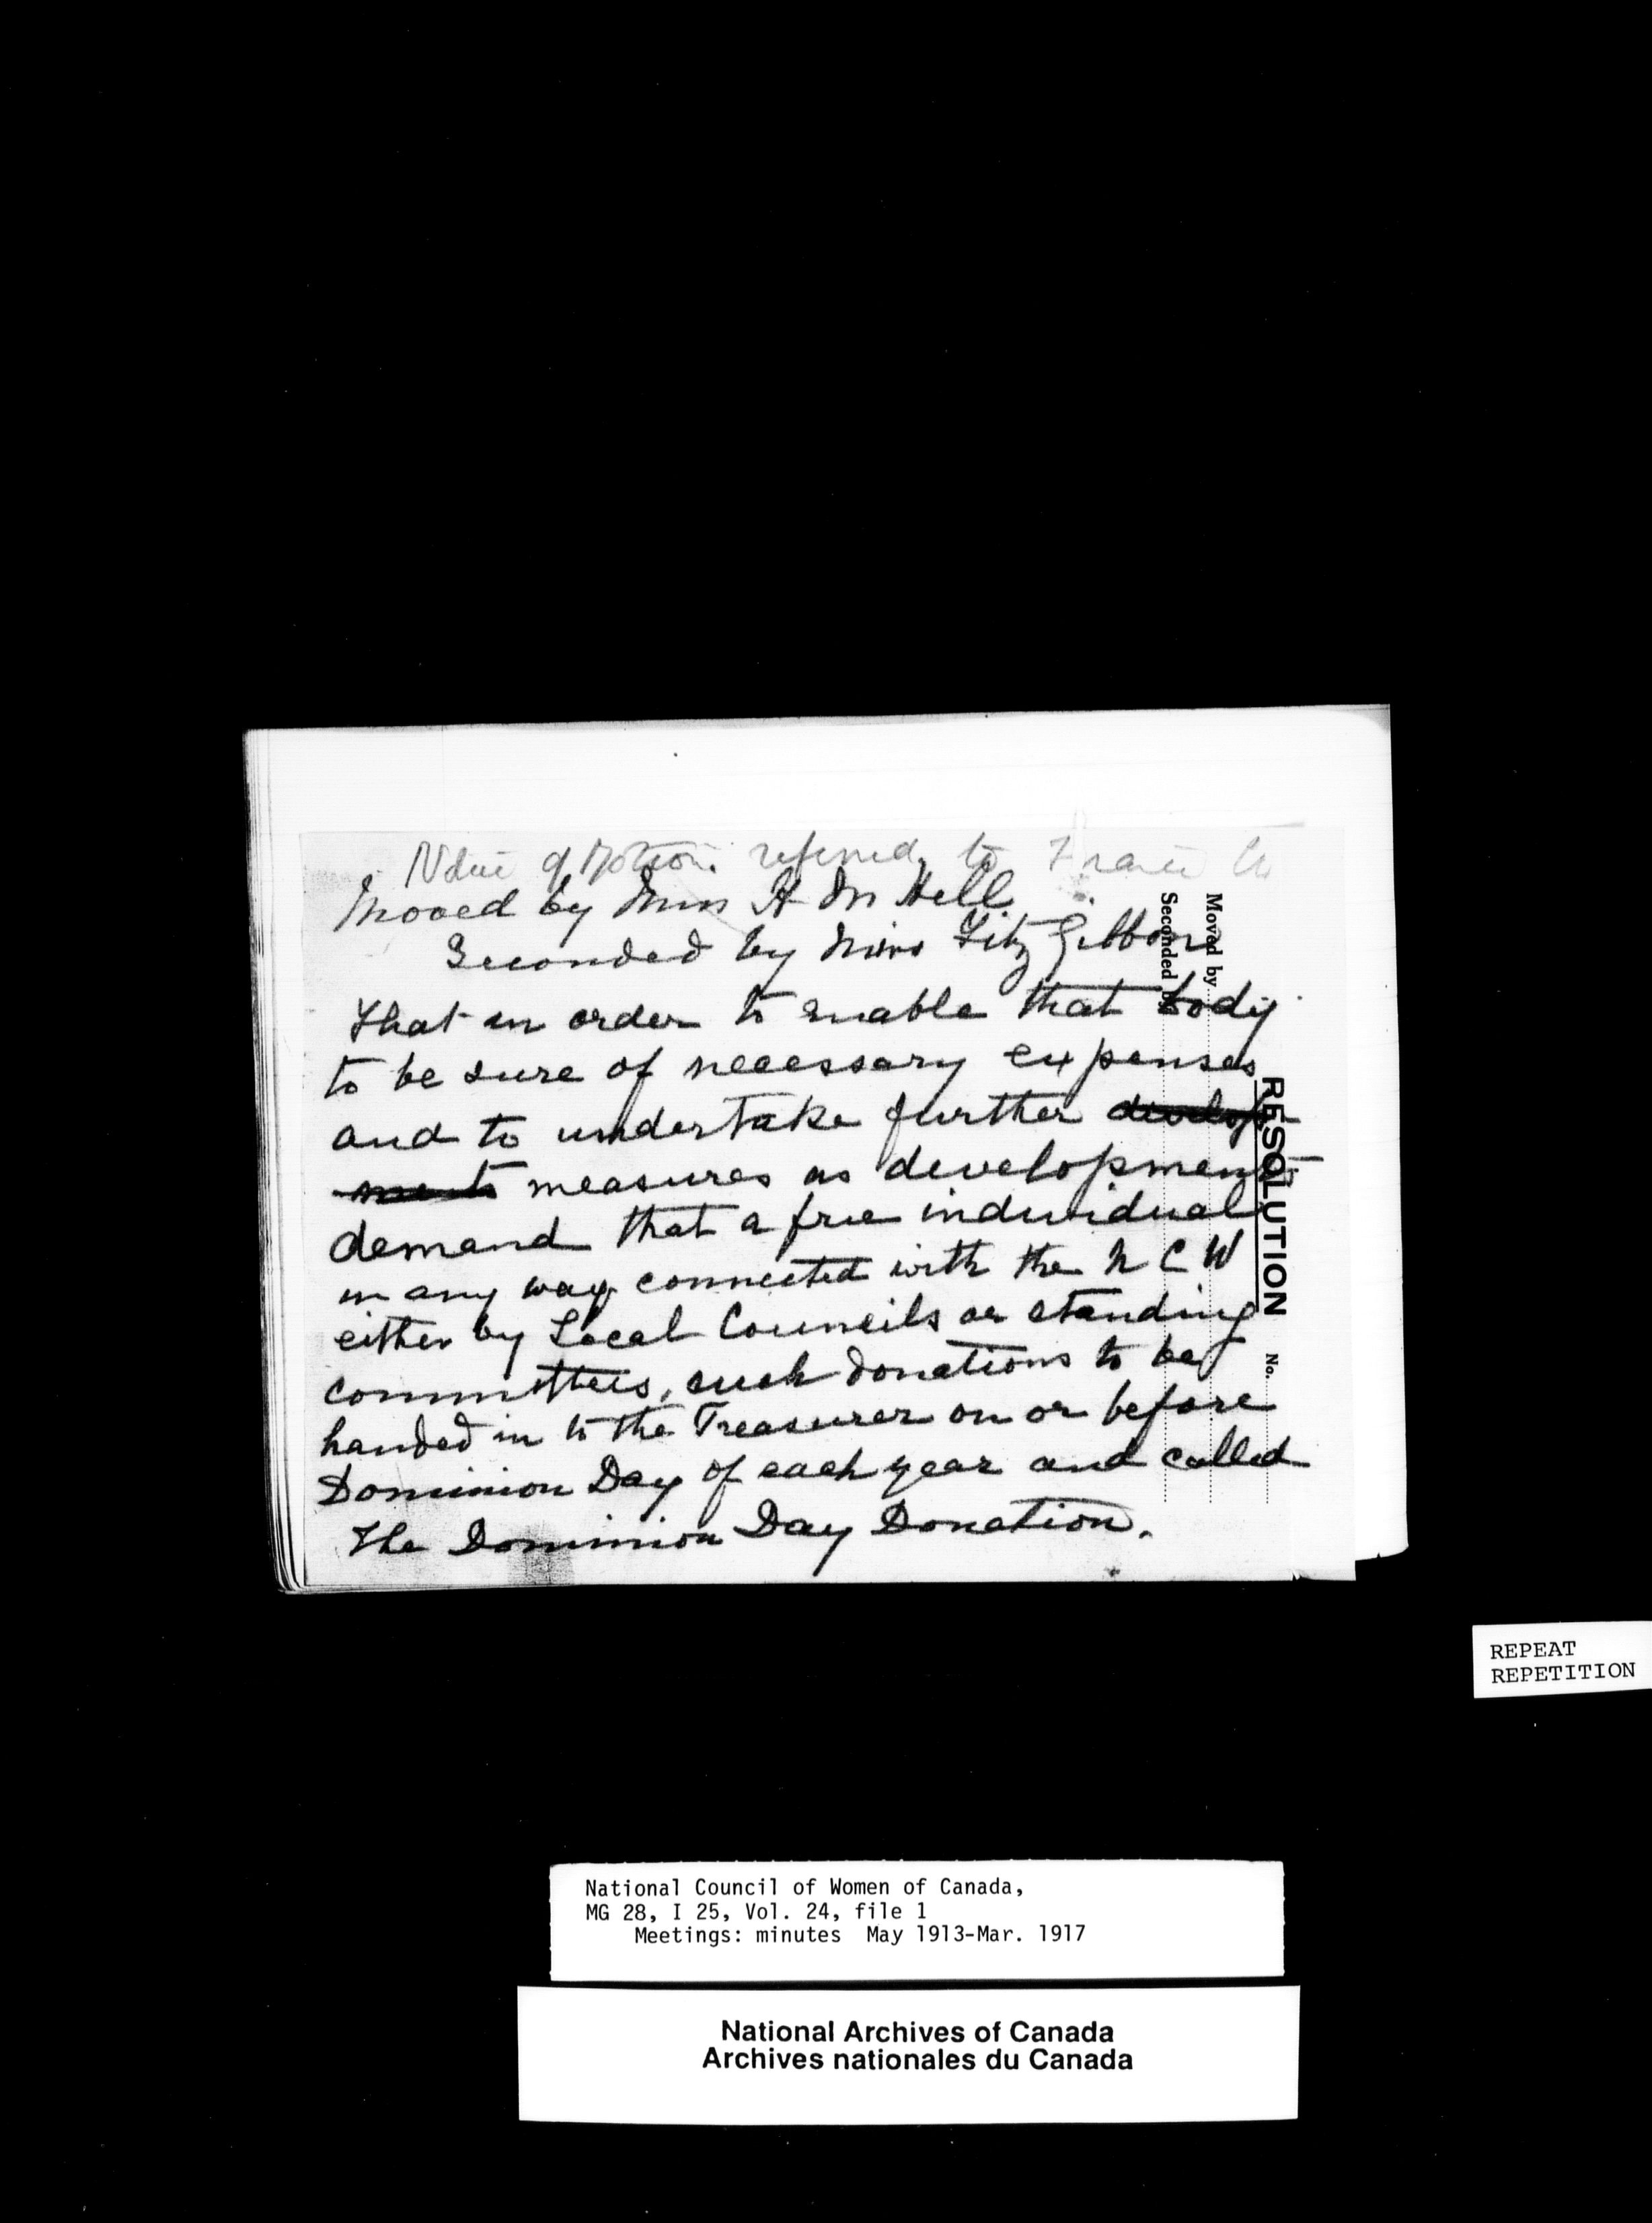 Notice of Motion. referred to
Moved by Miss H M Hill
Seconded by Miss Fitz Gibbon
That in order to enable that body
to be sure of necessary expenses
and to undertake further develop
ments measures as developments
demand that a free individual
in any way connected with the N C W
either by Local Councils or standing
committees, such donations to be
handed in to the Treasurer on or before
Dominion Day of each year and called
The Dominion Day Donation.
RESOLUTION No.
Moved by
Seconded
REPEAT
REPETITION
National Council of Women of Canada,
MG 28, I 25, Vol. 24, file 1
Meetings: minutes May 1913-Mar. 1917
National Archives of Canada
Archives nationales du Canada